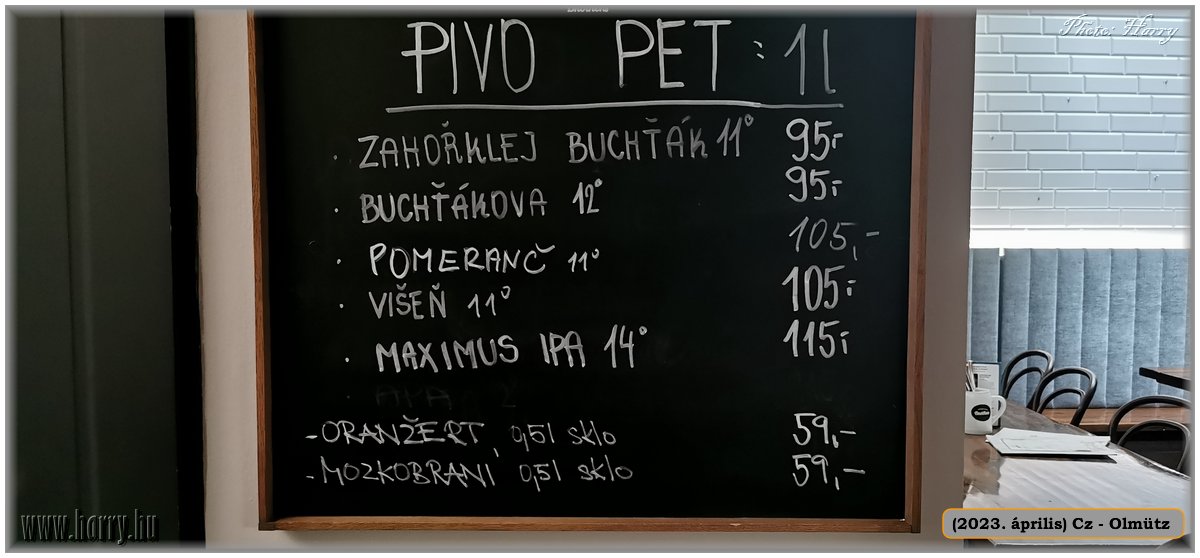 Photo: Harry
PIVO PET : 1l
· ZAHOŘKLEJ BUCHŤÁK 11° 95,-
· BUCHŤÁKOVA 12° 95,-
· POMERANČ 11° 105,-
· VIŠEŇ 11° 105,-
· MAXIMUS IPA 14° 115,-
- ORANŽERT, 0,5l sklo 59,-
- MOZKOBRANI 0,5l sklo 59,-
www.harry.hu
(2023. április) Cz - Olmütz